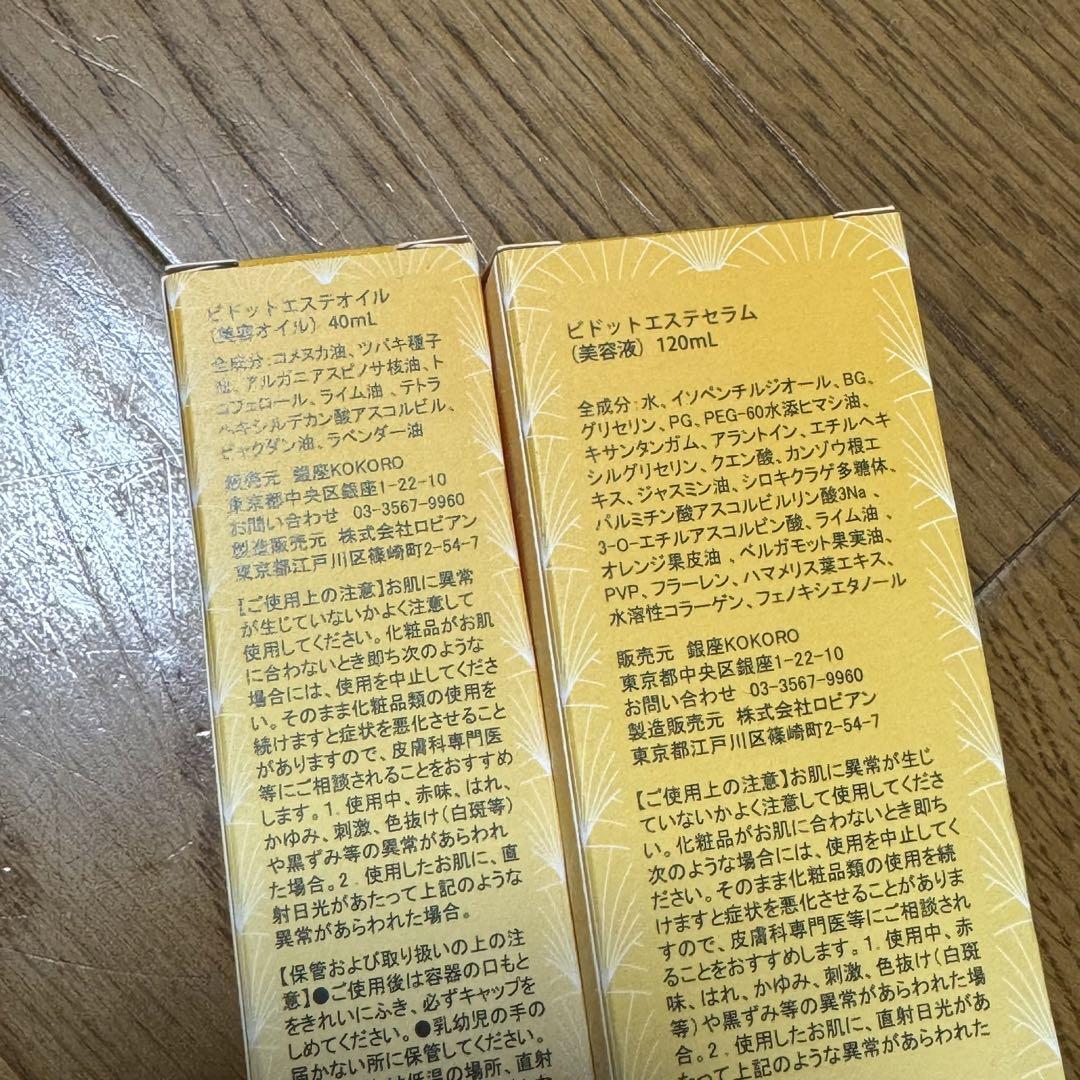 ビドットエステオイル
(美容オイル) 40mL
全成分:コメヌカ油、ツバキ種子
油、アルガニアスピノサ核油、ト
コフェロール、ライム油、テトラ
ヘキシルデカン酸アスコルビル、
ビャクダン油、ラベンダー油
販売元 銀座KOKORO
東京都中央区銀座1-22-10
お問い合わせ 03-3567-9960
製造販売元 株式会社ロビアン
東京都江戸川区篠崎町2-54-7
【ご使用上の注意】お肌に異常
が生じていないかよく注意して
使用してください。化粧品がお肌
に合わないとき即ち次のような
場合には、使用を中止してくださ
い。そのまま化粧品類の使用を
続けますと症状を悪化させること
がありますので、皮膚科専門医
等にご相談されることをおすすめ
します。1. 使用中、赤味、はれ、
かゆみ、刺激、色抜け(白斑等)
や黒ずみ等の異常があらわれ
た場合。2. 使用したお肌に、直
射日光があたって上記のような
異常があらわれた場合。
【保管および取り扱いの上の注
意】●ご使用後は容器の口もと
をきれいにふき、必ずキャップを
しめてください。●乳幼児の手の
届かない所に保管してください。
低温の場所、直射
ビドットエステセラム
(美容液) 120mL
全成分:水、イソペンチルジオール、BG、
グリセリン、PG、PEG-60水添ヒマシ油、
キサンタンガム、アラントイン、エチルヘキ
シルグリセリン、クエン酸、カンゾウ根エ
キス、ジャスミン油、シロキクラゲ多糖体、
パルミチン酸アスコルビルリン酸3Na 、
3-O-エチルアスコルビン酸、ライム油 、
オレンジ果皮油 、ベルガモット果実油、
PVP、フラーレン、ハマメリス葉エキス、
水溶性コラーゲン、フェノキシエタノール
販売元 銀座KOKORO
東京都中央区銀座1-22-10
お問い合わせ 03-3567-9960
製造販売元 株式会社ロビアン
東京都江戸川区篠崎町2-54-7
【ご使用上の注意】お肌に異常が生じ
ていないかよく注意して使用してくださ
い。化粧品がお肌に合わないとき即ち
次のような場合には、使用を中止してく
ださい。そのまま化粧品類の使用を続
けますと症状を悪化させることがありま
すので、皮膚科専門医等にご相談され
ることをおすすめします。1. 使用中、赤
味、はれ、かゆみ、刺激、色抜け(白斑
等)や黒ずみ等の異常があらわれた場
合。2. 使用したお肌に、直射日光があ
たって上記のような異常があらわれた